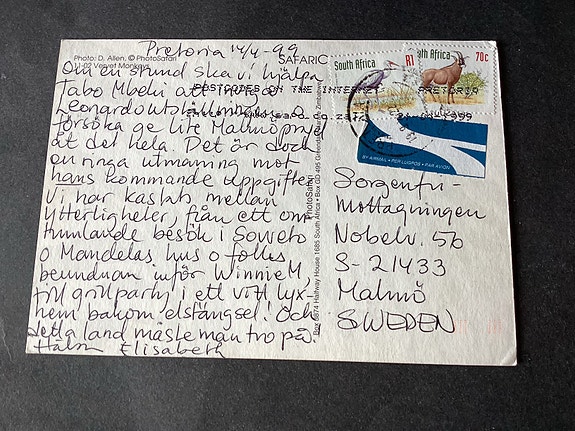 Pretoria 14/4-99
Photo: D. Allen. © PhotoSafari
11-02 Vervet Monkeys
SAFARI
Om en stund ska vi hjälpa
Tabo Mbeki att inviga
Leonardoutställningen o
försöka ge lite Malmöprägel
åt det hela. Det är dock
en ringa utmaning mot
hans kommande uppgifter.
Vi har kastats mellan
ytterligheter, från ett om-
tumlande besök i Soweto
o Mandelas hus o folks
beundran inför Winnie M,
till grillparty i ett vitt lyx-
hem bakom elstängsel! Och
detta land måste man tro på
Hälsn Elisabeth
PhotoSafari
Box 5874 Halfway House 1685 South Africa • Box GD 495 Greendale Harare Zimbabwe
South Africa R1
South Africa 70c
POSTCODES ON THE INTERNET
PRETORIA
1999
BY AIRMAIL • PER LUGPOS • PAR AVION
Sorgenfri-
Mottagningen
Nobelv. 56
S-21433
Malmö
SWEDEN